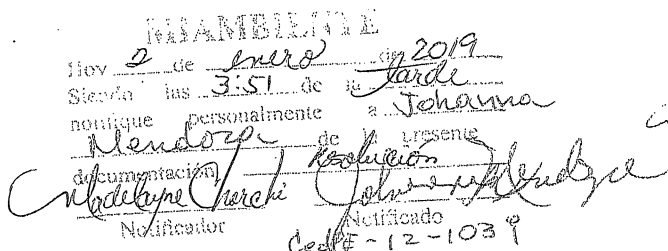 MIAMBIENTE
Hoy 2 de enero de 2019
Siendo las 3:51 de la tarde
notifique personalmente a Johanna
Mendoza de la presente
documentación Resolución
Notificador Notificado
Ced PE-12-1039